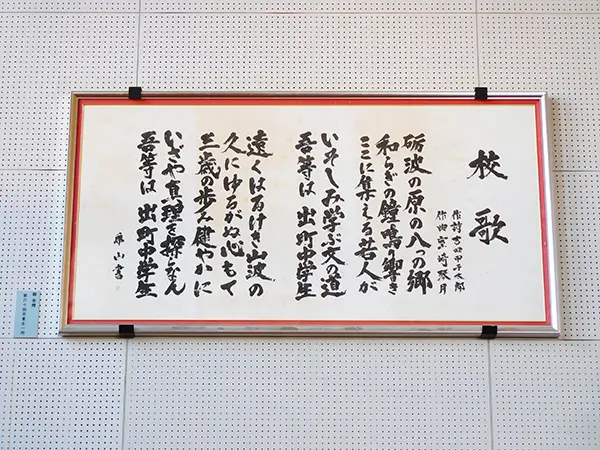 校歌
作詩 吉田甲子太郎
作曲 室崎琴月
砺波の原の八つの郷
和らぎの鐘鳴り響き
ここに集える若人が
いそしみ学ぶ文の道
吾等は 出町中学生
遠くはるけき山波の
久にゆるがぬ心もて
三歳の歩み健やかに
いざや真理を探なん
吾等は 出町中学生